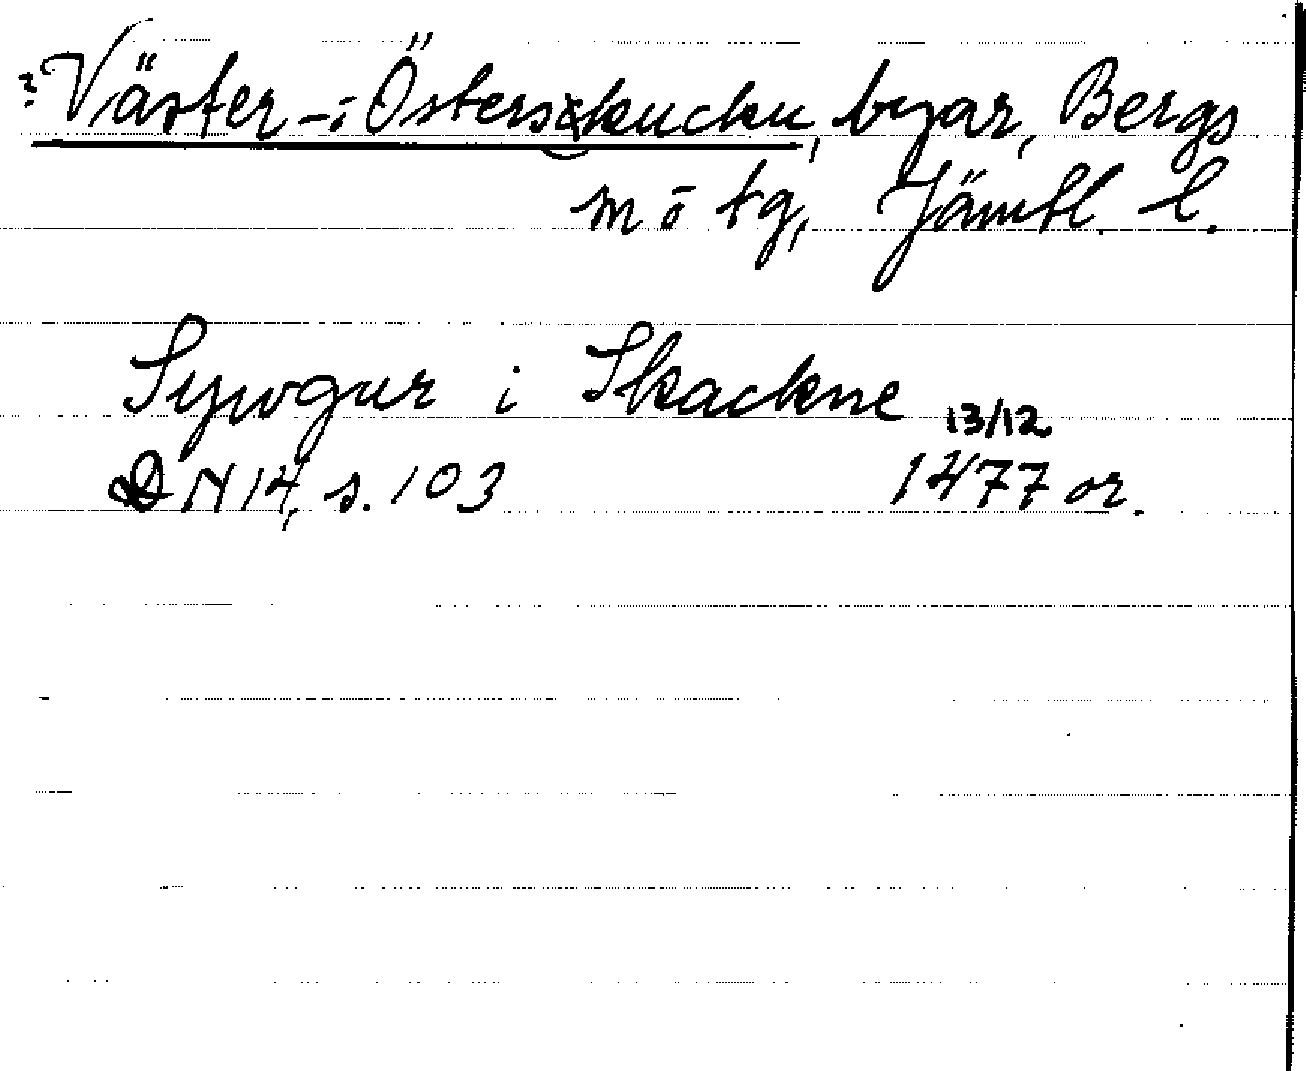 ? Väster- i Österskucku, byar, Bergs
mō tg, Jämtl. l.
Sywgur i Skackne
13/12
DN 14, s. 103 1477 or.